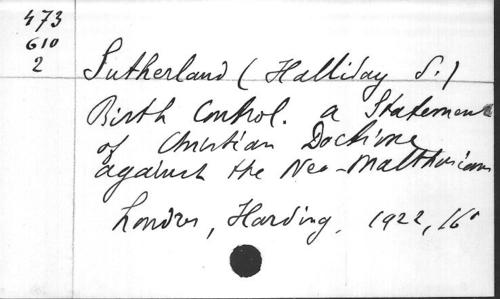 473
610
2
Sutherland (Halliday S.)
Birth Control. a Statement
of Christian Doctrine
against the Neo-Malthusians
Londres, Harding, 1922, 16°